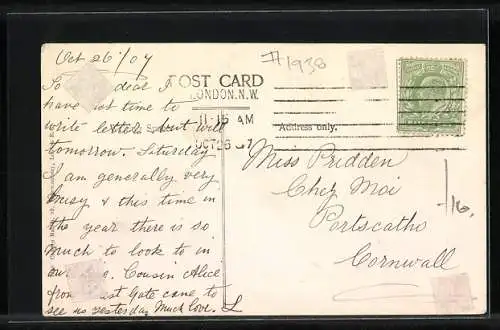 Oct 26/07
#1938
So dear I
have not time to
write letters but will
tomorrow. Saturday
I am generally very
busy & this time in
the year there is so
much to look to in
Cousin Alice
from Gate came to
see us yesterday Much love.
POST CARD
LONDON.N.W.
11-15 AM
OCT 26 07
Address only.
Miss Pridden
Chez Moi
Portscatho
Cornwall
16.